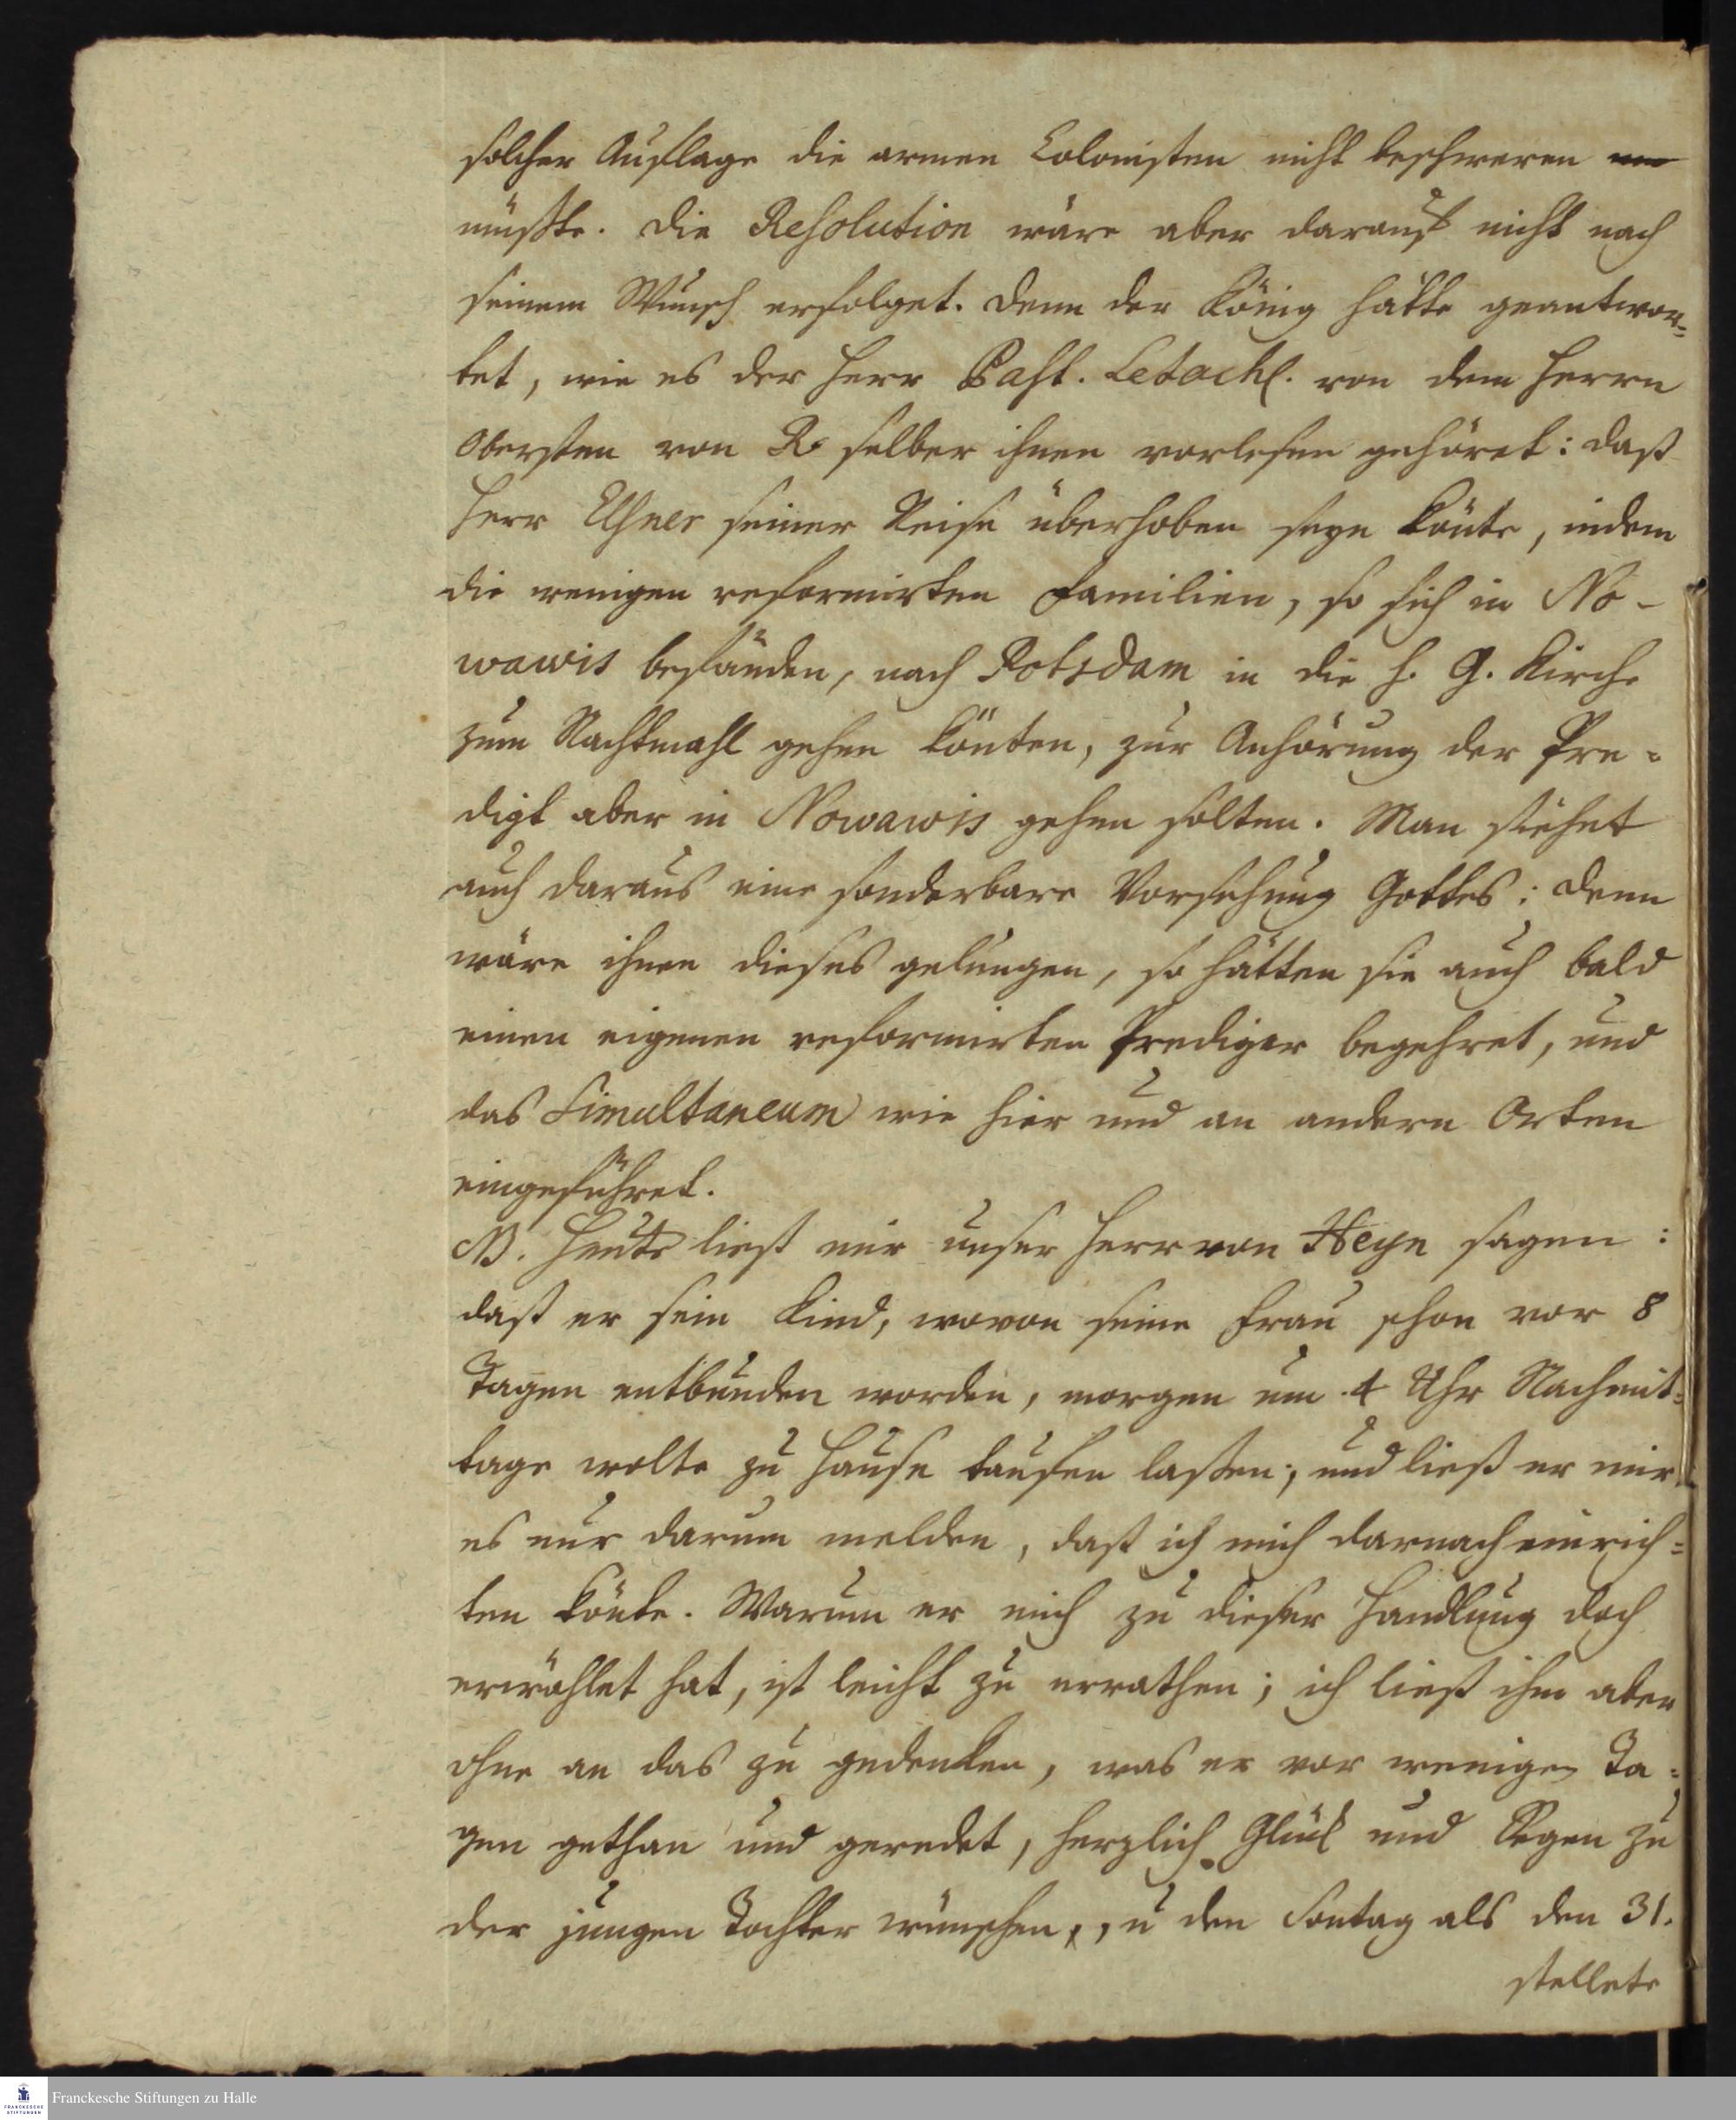 solcher Auflage die armen Colonisten nicht beschweren
müßte. Die Resolution wäre aber darauf nicht nach
seinem Wunsch erfolget. Denn der König hätte geantwor=
tet, wie es der Herr Past. Letochl. von dem Herrn
Obersten von R. selber ihnen vorlesen gehöret: daß
Herr Elsner seiner Reise überhoben seyn könte, indem
die wenigen reformirten Familien, so sich in No-
wawis befänden, nach Potsdam in die H. G. Kirche
zum Nachtmahl gehen könten, zur Anhörung der Pre=
digt aber in Nowawis gehen solten. Man siehet
auch daraus eine sonderbare Vorsehung Gottes: denn
wäre ihnen dieses gelungen, so hätten sie auch bald
einen eigenen reformirten Prediger begehret, und
das Simultaneum wie hier und an andern Orten
eingeführet.
NB. Heute ließ mir unser Herr von Heyn sagen:
daß er sein Kind, wovon seine Frau schon vor 8
Tagen entbunden worden, morgen um 4 Uhr Nachmit=
tage wolte zu Hause taufen laßen; und ließ er mir
es nur darum melden, daß ich mich darnach einrich=
ten könte. Warum er mich zu dieser Handlung doch
erwählet hat, ist leicht zu errathen; ich ließ ihm aber
ohne an das zu gedenken, was er vor wenigen Ta=
gen gethan und geredet, herzlich Glück und Segen zu
der jungen Tochter wünschen, u den Sontag als den 31.
stellete
Franckesche Stiftungen zu Halle
FRANCKESCHE
STIFTUNGEN